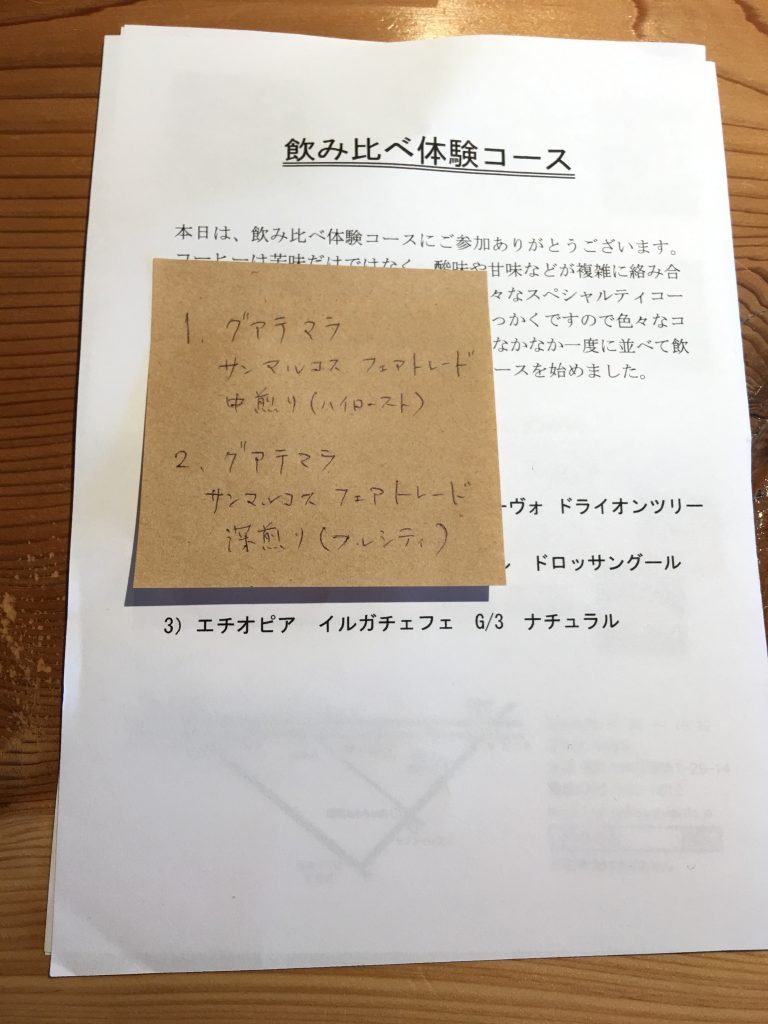 飲み比べ体験コース
本日は、飲み比べ体験コースにご参加ありがとうございます。
コーヒーは苦味だけではなく、酸味や甘味などが複雑に絡み合
々なスペシャルティコー
っかくですので色々なコ
なかなか一度に並べて飲
ースを始めました。
1、グアテマラ
サンマルコス フェアトレード
中煎り(ハイロースト)
2、グアテマラ
サンマルコス フェアトレード
深煎り(フルシティ)
ーヴォ ドライオンツリー
ル ドロッサングール
3) エチオピア イルガチェフェ G/3 ナチュラル